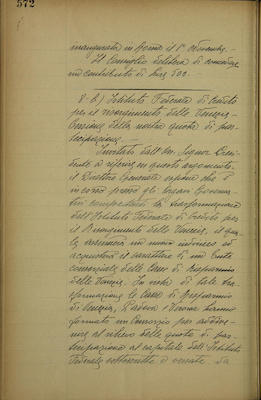 572
inaugurata in Roma il 1° novembre. -
Il Consiglio delibera di concedere
un contributo di Lire 500. -
8-b) Istituto Federale di Credito
per il risorgimento delle Venezie -
Cessione della nostra quota di par-
tecipazione. -
Invitato dall'On. Signor Presi-
dente a riferire in questo argomento,
il Direttore Generale espone che è
in corso presso gli organi Governa-
tivi competenti la trasformazione
dell'Istituto Federale di Credito per
il Risorgimento delle Venezie, il qua-
le assumerà un nuovo indirizzo ed
acquisterà il carattere di un Ente
consorziale delle Casse di Risparmio
delle Venezie. In vista di tale tra-
sformazione le Casse di Risparmio
di Venezia, Padova e Verona hanno
formato un Consorzio per addive-
nire al rilievo delle quote di par-
tecipazione al capitale dell'Istituto
Federale sottoscritte e versate da